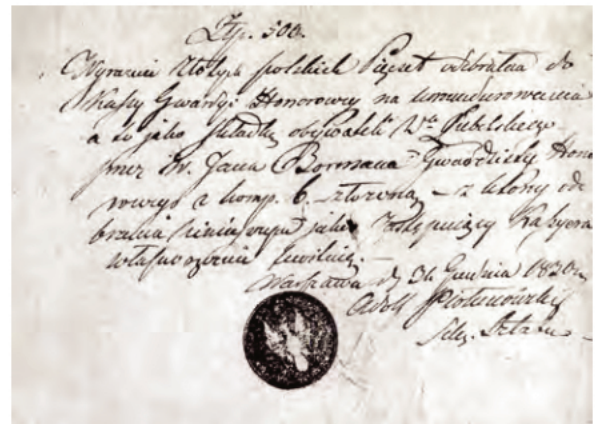 Złp. 500.
Wyraznie Złotych polskich Pięset odebrałem do
Kassy Gwardyi Honorowey na umundurowanie
a to jako składkę obywateli Wa Lubelskiego
przez Wr. Jana Bormana Gwardzistę Hono
rowego z komp. 6. złożoną – z której ode
brania ninieyszym jako zastępujący Kassyera
własnoręcznie kwituię.
Warszawa d. 31 Grudnia 1830 r.
Adolf
Sztabu